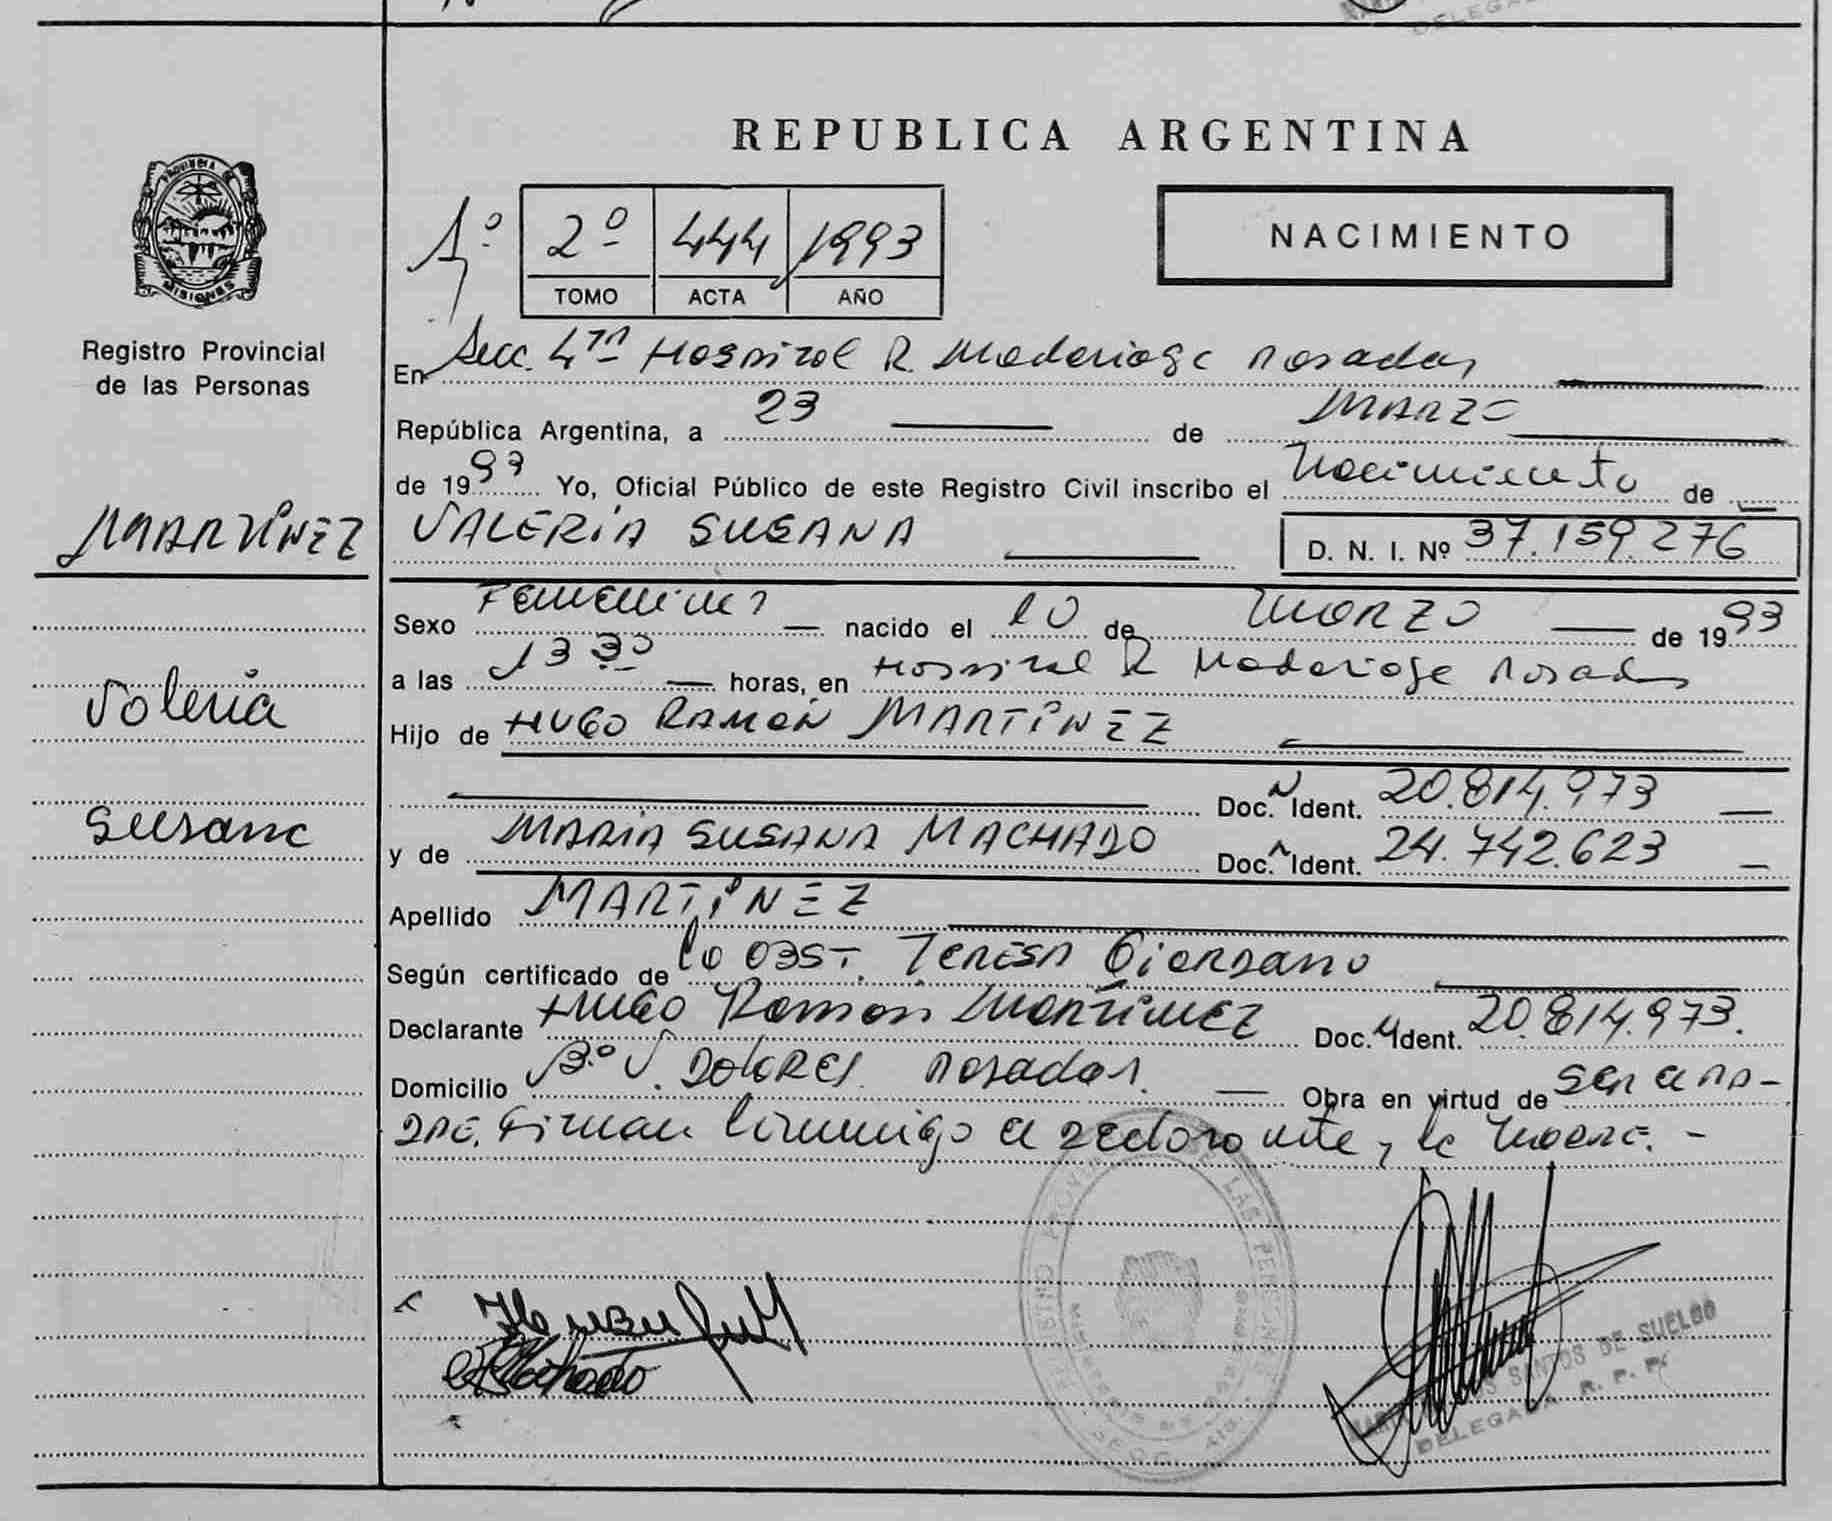 REPUBLICA ARGENTINA
PROVINCIA DE
MISIONES
Registro Provincial
de las Personas
1º
2º 444 1993
TOMO ACTA AÑO
NACIMIENTO
En Secc. 4ta Hospital R. Madariaga Posadas
República Argentina, a 23 de MARZO
de 1993 Yo, Oficial Público de este Registro Civil inscribo el Nacimiento de
MARTÍNEZ
VALERIA SUSANA
D. N. I. Nº 37.159.276
Sexo Femenino nacido el 10 de MARZO de 1993
a las 13 30 horas, en Hospital R Madariaga Posadas
Valeria
Hijo de HUGO RAMÓN MARTÍNEZ
Doc. N Ident. 20.814.973
Susana
y de MARIA SUSANA MACHADO Doc. N Ident. 24.742.623
Apellido MARTÍNEZ
Según certificado de la OBST. TERESA GIORDANO
Declarante HUGO Ramón MARTÍNEZ Doc. N Ident. 20.814.973.
Domicilio Bº V. DOLORES Posadas. Obra en virtud de ser el pa-
dre. Firman conmigo el declarante y la madre. -
Machado
SANTOS DE SUELDO
DELEGADA R. P. P.